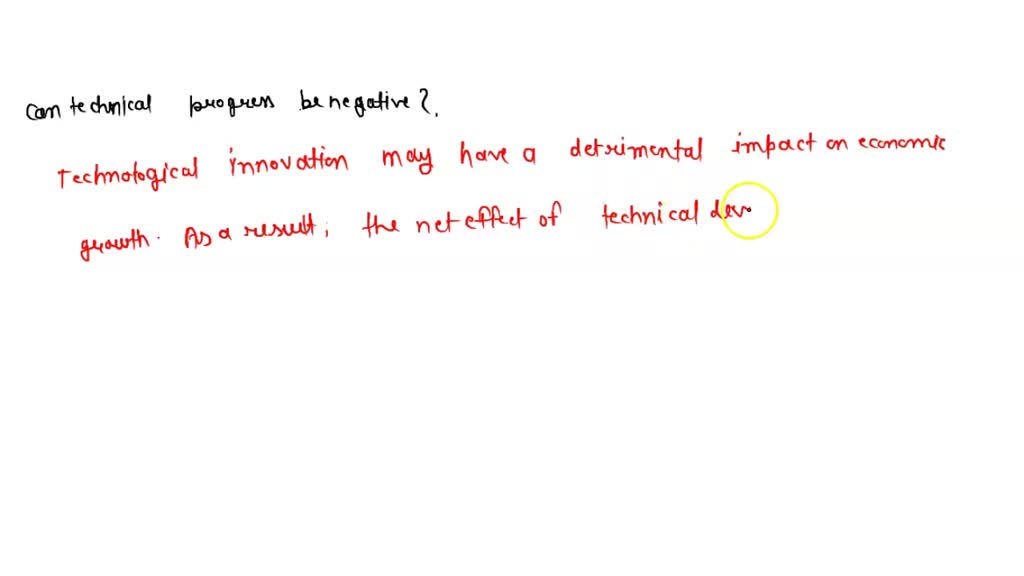 Can technical progress be negative?.
Technological innovation may have a detrimental impact on economic
growth. As a result, the net effect of technical dev